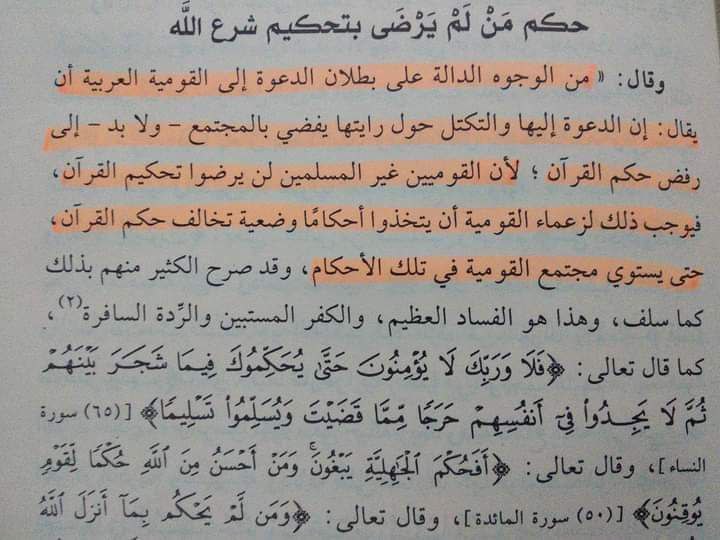 حكم مَنْ لَمْ يَرْضَى بتحكيم شرع اللَّه
وقال: « من الوجوه الدالة على بطلان الدعوة إلى القومية العربية أن
يقال: إن الدعوة إليها والتكتل حول رايتها يفضي بالمجتمع – ولا بد – إلى
رفض حكم القرآن ؛ لأن القوميين غير المسلمين لن يرضوا تحكيم القرآن ،
فيوجب ذلك لزعماء القومية أن يتخذوا أحكامًا وضعية تخالف حكم القرآن ،
حتى يستوي مجتمع القومية في تلك الأحكام ، وقد صرح الكثير منهم بذلك
كما سلف، وهذا هو الفساد العظيم، والكفر المستبين والرِّدة السافرة(٢) ،
كما قال تعالى: ﴿فَلَا وَرَبِّكَ لَا يُؤْمِنُونَ حَتَّىٰ يُحَكِّمُوكَ فِيمَا شَجَرَ بَيْنَهُمْ
ثُمَّ لَا يَجِدُوا۟ فِىٓ أَنفُسِهِمْ حَرَجًا مِّمَّا قَضَيْتَ وَيُسَلِّمُوا۟ تَسْلِيمًا﴾ [(٦٥) سورة
النساء]، وقال تعالى: ﴿أَفَحُكْمَ ٱلْجَٰهِلِيَّةِ يَبْغُونَ ۚ وَمَنْ أَحْسَنُ مِنَ ٱللَّهِ حُكْمًا لِّقَوْمٍ
يُوقِنُونَ﴾ [(٥٠) سورة المائدة]، وقال تعالى: ﴿وَمَن لَّمْ يَحْكُم بِمَآ أَنزَلَ ٱللَّهُ